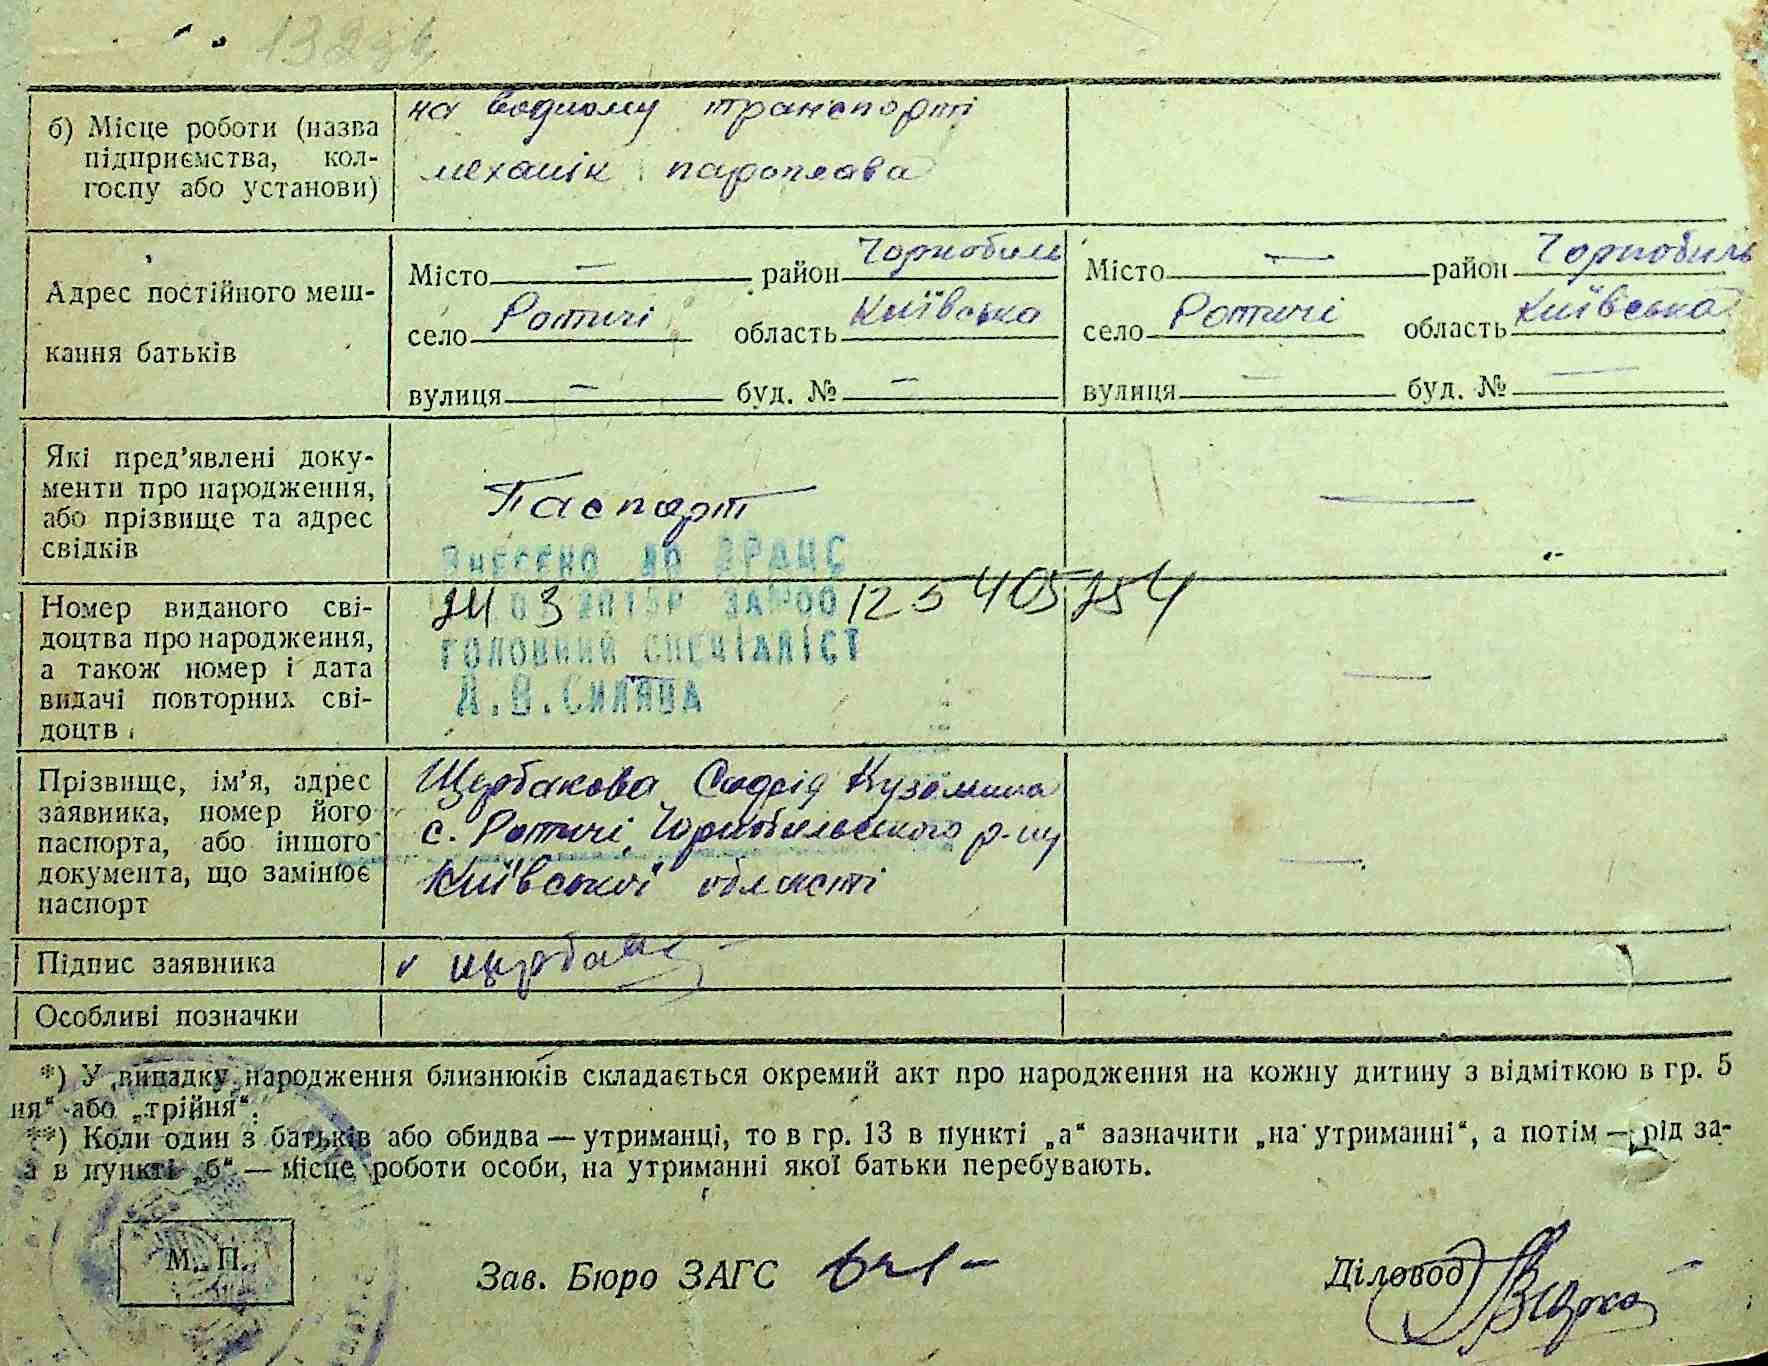 б) Місце роботи (назва
підприємства, кол-
госпу або установи)
на водному транспорті
механік пароплава
Адрес постійного меш-
кання батьків
Місто — район Чорнобиль
село Ротичі область Київська
вулиця — буд. № —
Місто — район Чорнобиль
село Ротичі область Київська
вулиця — буд. № —
Які пред'явлені доку-
менти про народження,
або прізвище та адрес
свідків
Паспорт
—
Внесено до ДРАЦС
Номер виданого сві-
доцтва про народження,
а також номер і дата
видачі повторних сві-
доцтв
ГОЛОВНИЙ СПЕЦІАЛІСТ
—
Прізвище, ім'я, адрес
заявника, номер його
паспорта, або іншого
документа, що замінює
паспорт
Щербакова Кузьмина
с. Ротичі, Чорнобильського р-ну
Київської області
—
Підпис заявника
Особливі позначки
*) У випадку народження близнюків складається окремий акт про народження на кожну дитину з відміткою в гр. 5
ня" або „трійня".
**) Коли один з батьків або обидва — утриманці, то в гр. 13 в пункті „а" зазначити „на утриманні", а потім — рід за-
а в пункті „б" — місце роботи особи, на утриманні якої батьки перебувають.
М. П.
Зав. Бюро ЗАГС
Діловод